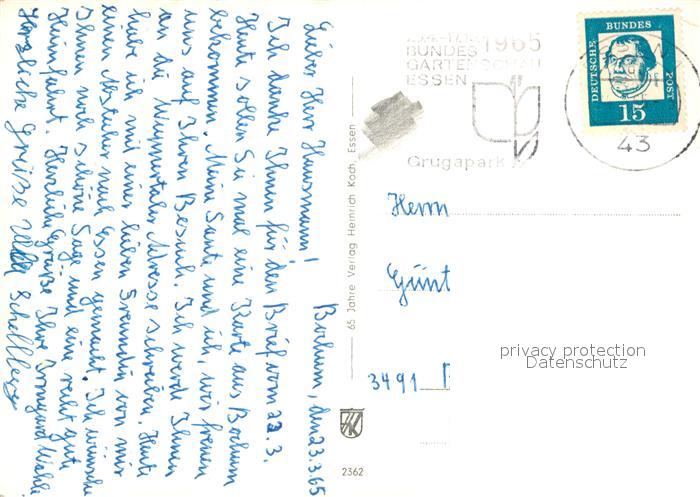 Bochum, den 23.3.65
Lieber Herr Hausmann!
Ich danke Ihnen für den Brief vom 22.3.
Heute sollen Sie mal eine Karte aus Bochum
bekommen. Meine Tante und ich, wir freuen
uns auf Ihren Besuch. Ich werde Ihnen
an die Wuppertaler Adresse schreiben. Heute
habe ich mit einer lieben Freundin von mir
einen Abstecher nach Essen gemacht. Ich wünsche
Ihnen noch schöne Tage und eine recht gute
Heimfahrt. Herzliche Grüße Ihre Irmgard
Herzliche Grüße
65 Jahre Verlag Heinrich Koch, Essen
2362
1965
BUNDES
GARTENSCHAU
ESSEN
Grugapark
43
DEUTSCHE
BUNDES
POST
15
Herrn
Günt
3491
privacy protection
Datenschutz